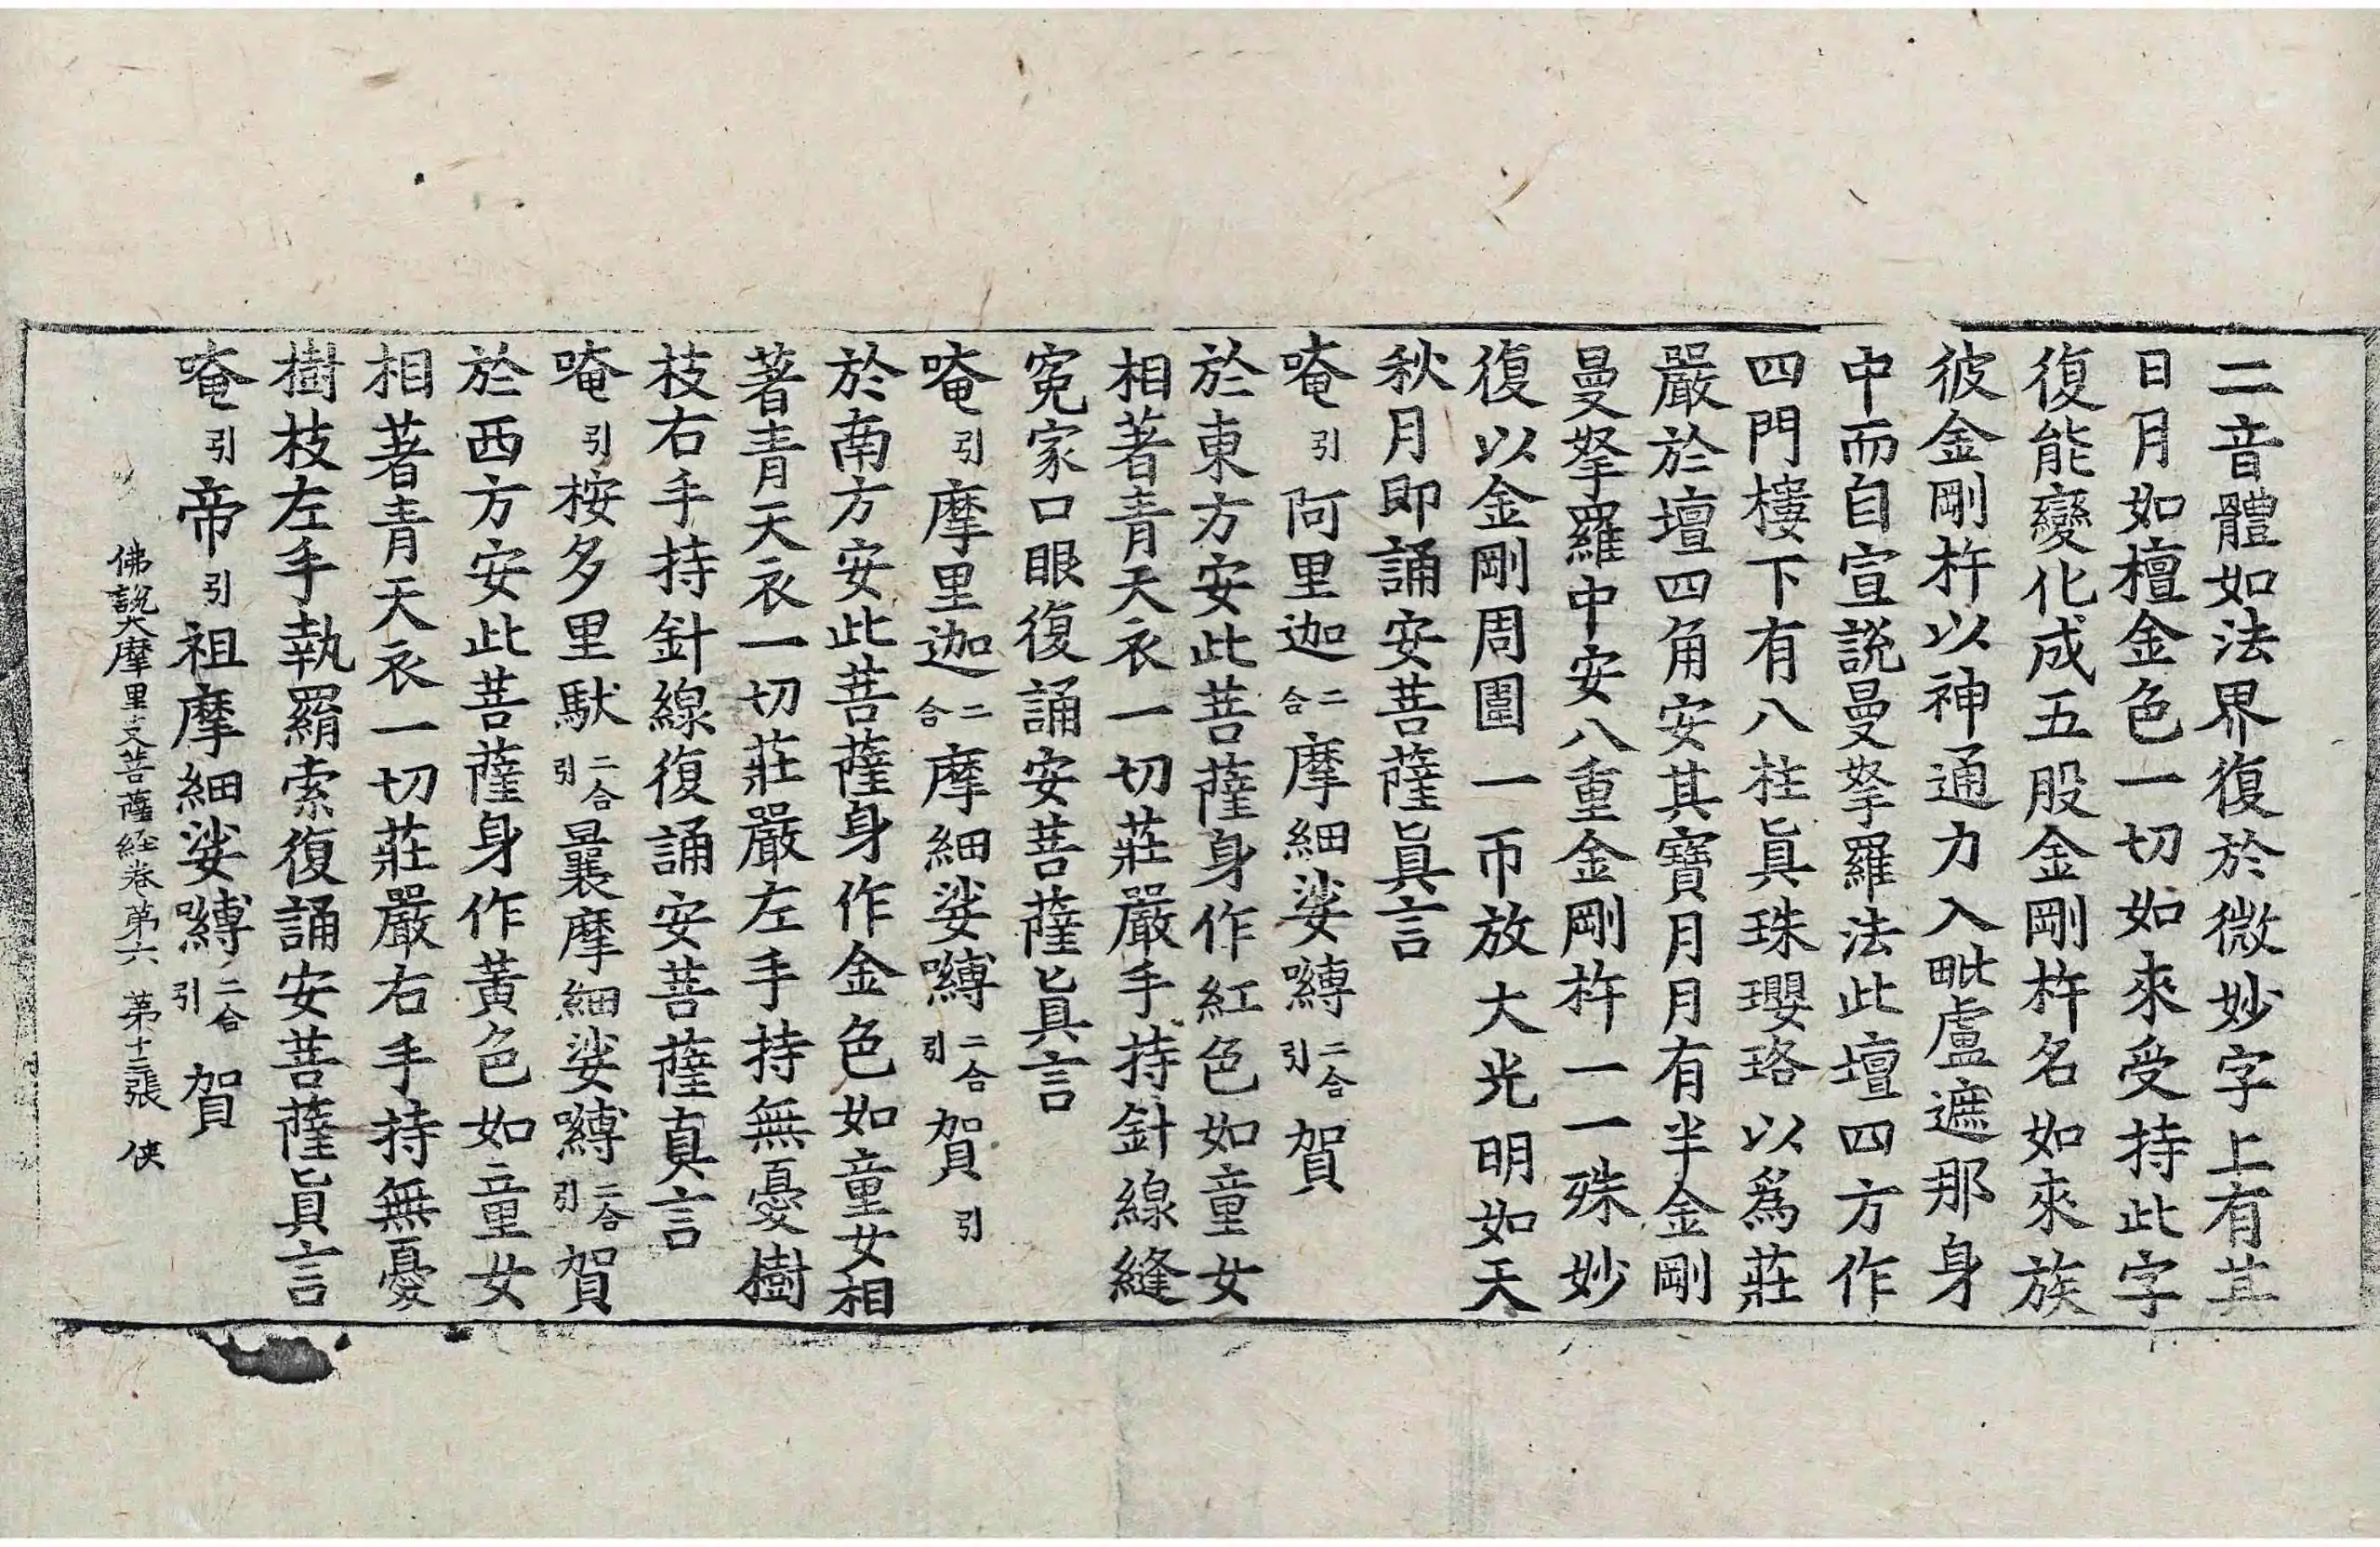 二音體如法界復於微妙字上有其
日月如檀金色一切如來受持此字
復能變化成五股金剛杵名如來族
彼金剛杵以神通力入毗盧遮那身
中而自宣說曼拏羅法此壇四方作
四門樓下有八柱眞珠瓔珞以爲莊
嚴於壇四角安其寶月月有半金剛
曼拏羅中安八重金剛杵一一殊妙
復以金剛周圍一帀放大光明如天
秋月即誦安菩薩眞言
唵引阿里迦二合摩細娑嚩二合引賀
於東方安此菩薩身作紅色如童女
相著青天衣一切莊嚴手持針線縫
寃家口眼復誦安菩薩眞言
唵引摩里迦二合摩細娑嚩二合引賀引
於南方安此菩薩身作金色如童女相
著青天衣一切莊嚴左手持無憂樹
枝右手持針線復誦安菩薩真言
唵引桉多里馱二合引曩摩細娑嚩二合引賀
於西方安此菩薩身作黃色如童女
相著青天衣一切莊嚴右手持無憂
樹枝左手執羂索復誦安菩薩眞言
唵引帝引祖摩細娑嚩二合引賀
佛說大摩里支菩薩經卷第六 第十二張 俠